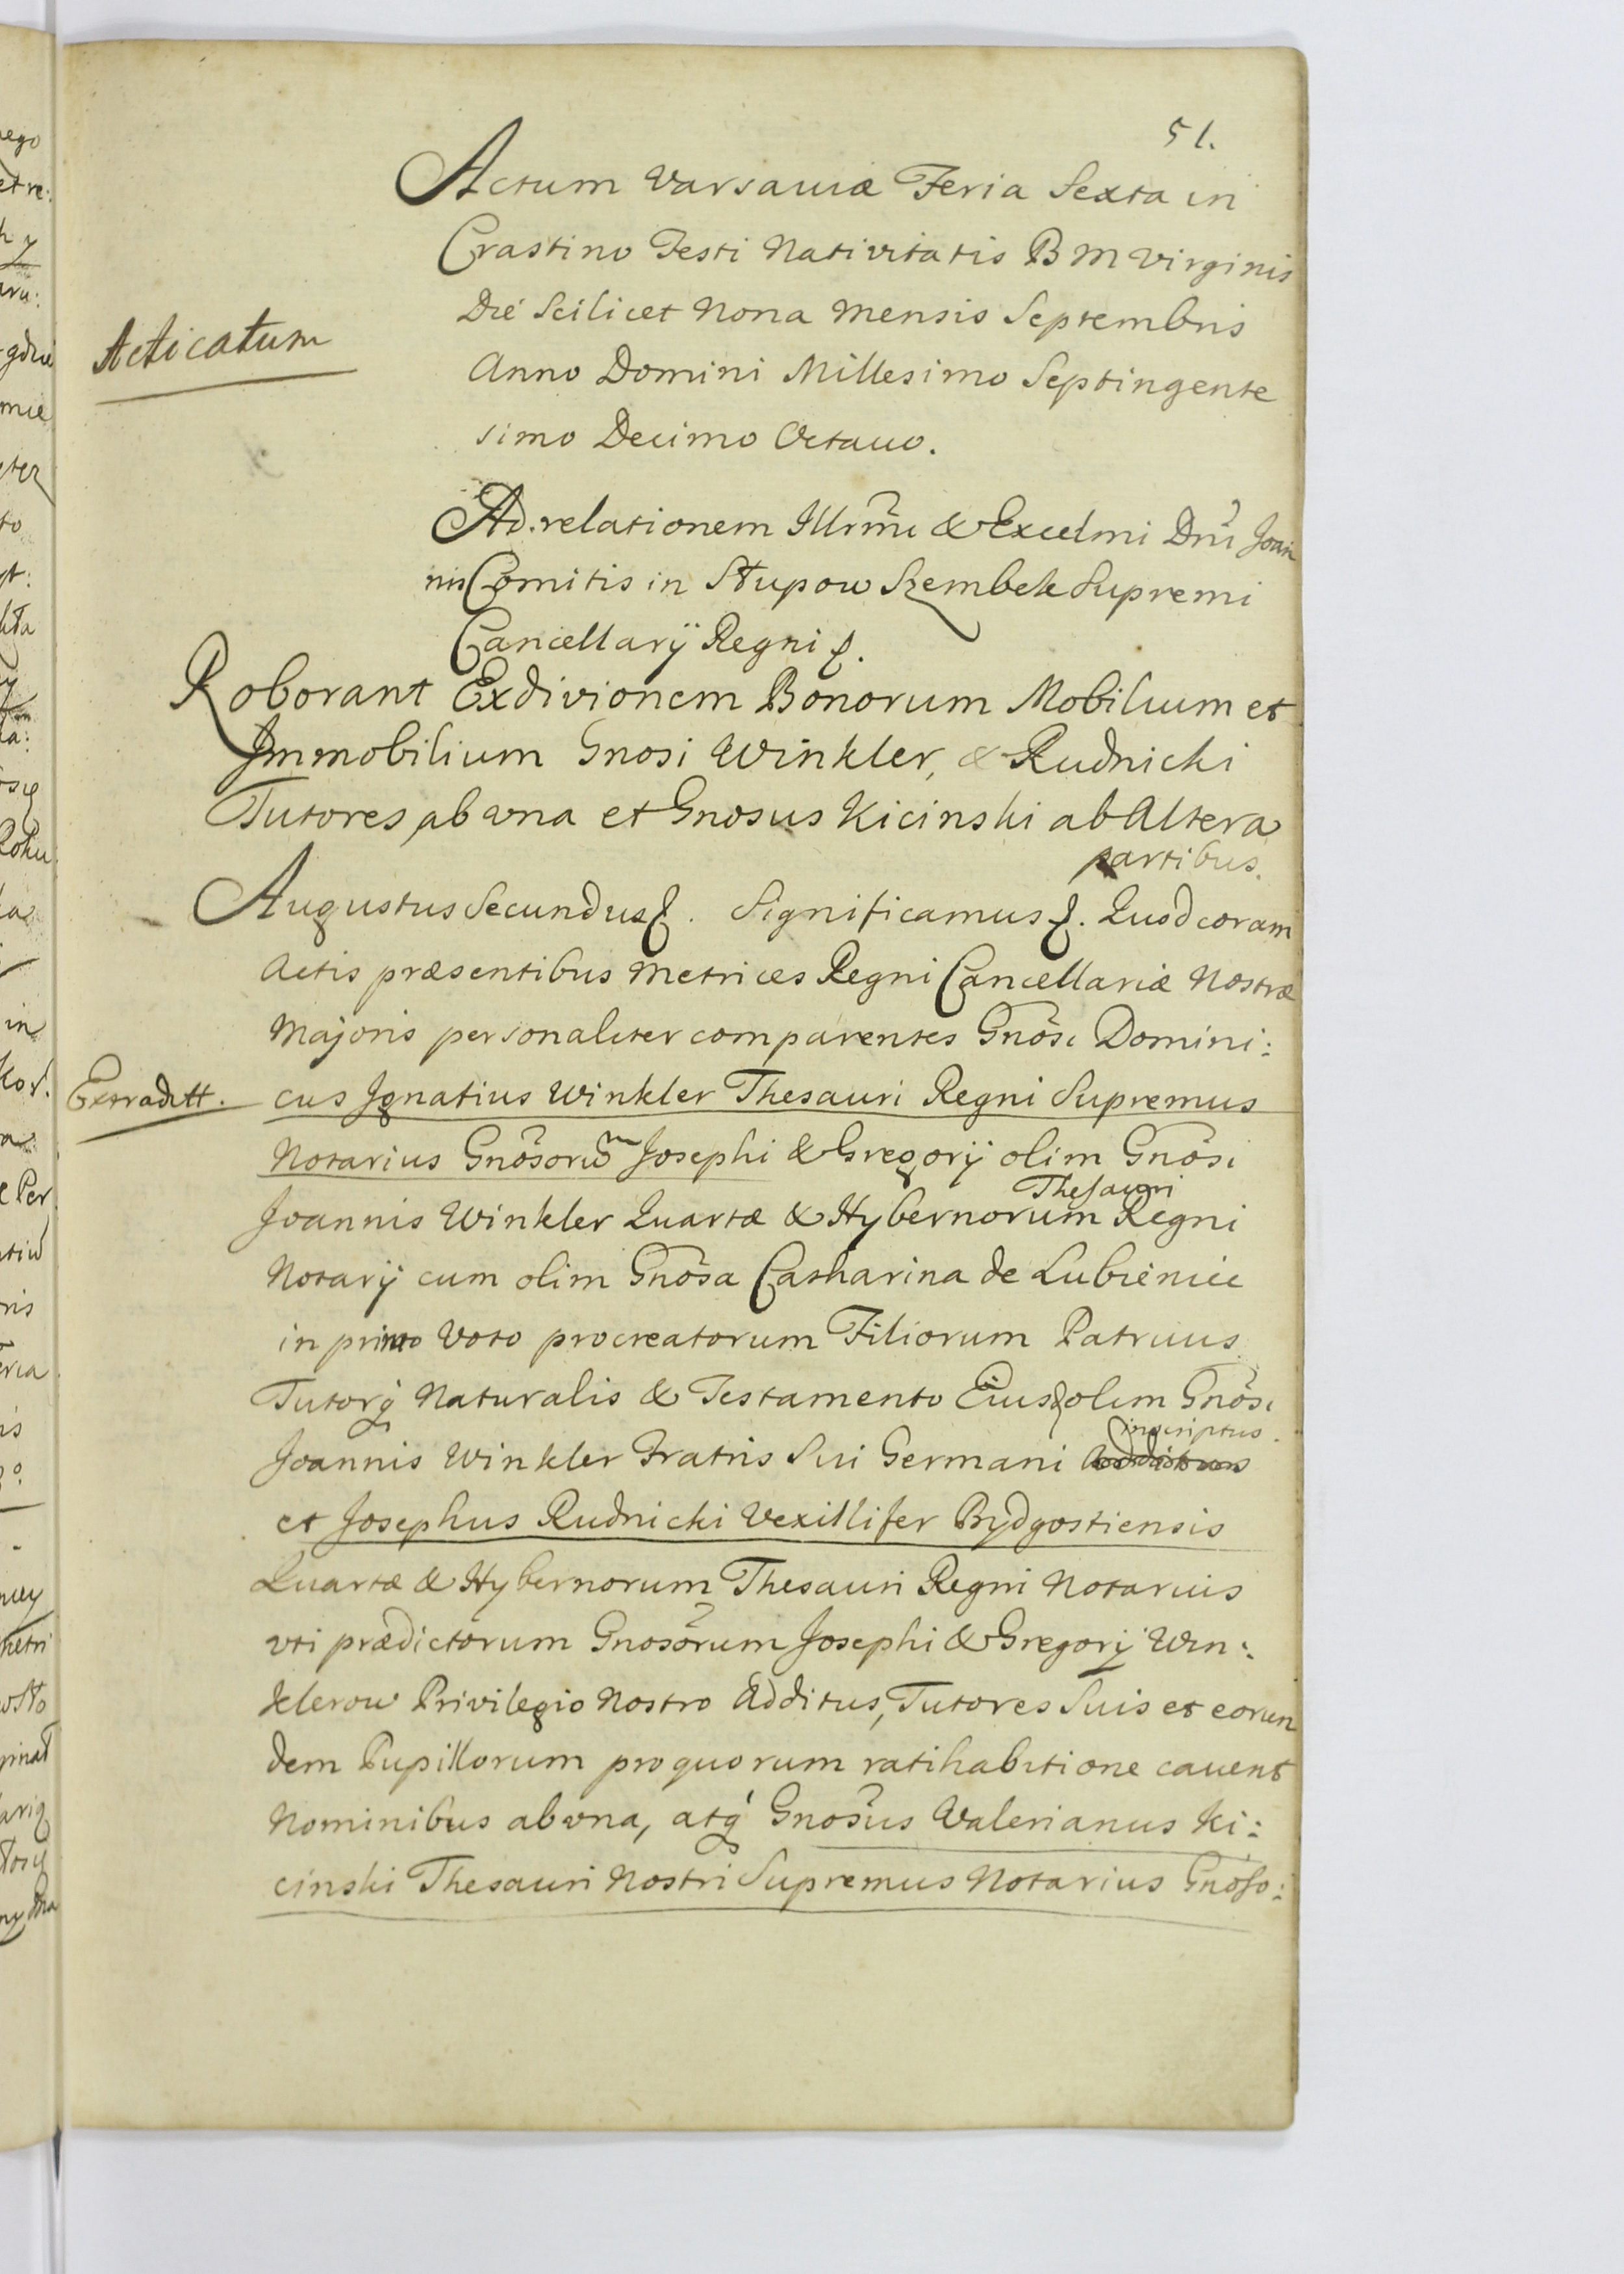 51.
Actum Varsaviæ Feria Sexta in
Crastino Festi Nativitatis B M Virginis
Die Scilicet Nona Mensis Septembris
Acticatum
Anno Domini Millesimo Septingente
simo Decimo Octauo.
Ad relationem Illrmi & Excelmi Dni Joan
nis Comitis in Słupow Szembek Supremi
Cancellarij Regni
Roborant Exdivionem Bonorum Mobilium et
Immobilium Gnosi Winkler, & Rudnicki
Tutores ab vna et Gnosus Kicinski ab Altera
partibus.
Augustus Secundus . Significamus . Quod coram
Actis præsentibus Metrices Regni Cancellariæ Nostræ
Majoris personaliter comparentes Gnosi Domini:
Extraditt.
cus Ignatius Winkler Thesauri Regni Supremus
Notarius Gnosorum Josephi & Gregorij olim Gnosi
Thesauri
Joannis Winkler Quartæ & Hybernorum Regni
Notarij cum olim Gnosa Catharina de Lubienice
in primo Voto procreatorum Filiorum Patruus
Tutorq Naturalis & Testamento Eiusd olim Gnosi
inscriptus.
Joannis Winkler Fratris Sui Germani Additus
et Josephus Rudnicki Vexillifer Bydgostiensis
Quartæ & Hybernorum Thesauri Regni Notarius
vti prædictorum Gnosorum Josephi & Gregorij Win:
klerow Privilegio Nostro Additus, Tutores Suis et eorun
dem Pupillorum pro quorum ratihabitione cauent
Nominibus ab vna, atq Gnosus Valerianus Ki:
cinski Thesauri Nostri Supremus Notarius Gnoso: